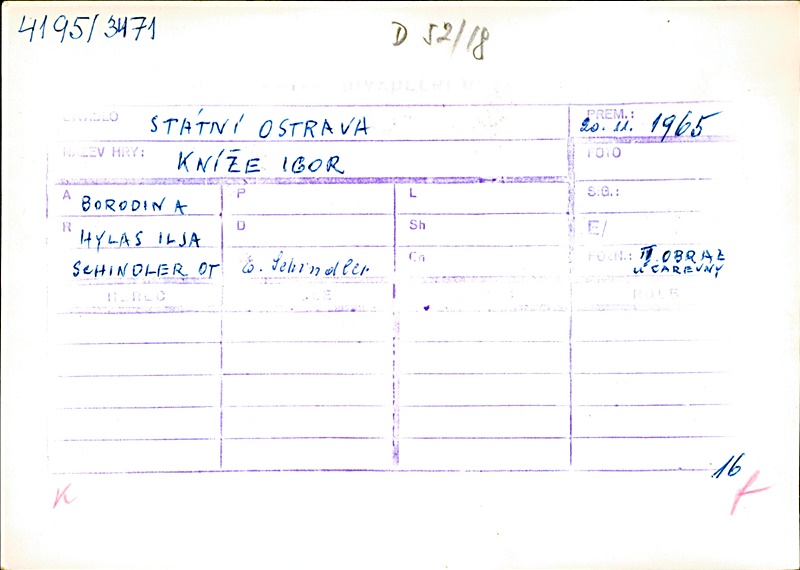 4195/3471
D 52/18
DIVADLO STÁTNÍ OSTRAVA
PREM.: 20. 11. 1965
NÁZEV HRY: KNÍŽE IGOR
FOTO
A BORODINA
P
L
S.G.:
R HYLAS ILJA
D
Sh
E/
SCHINDLER OT
O. Schindler
POZN.: III. OBRAZ
U CAREVNY
HEREC
ROLE
16
K
f